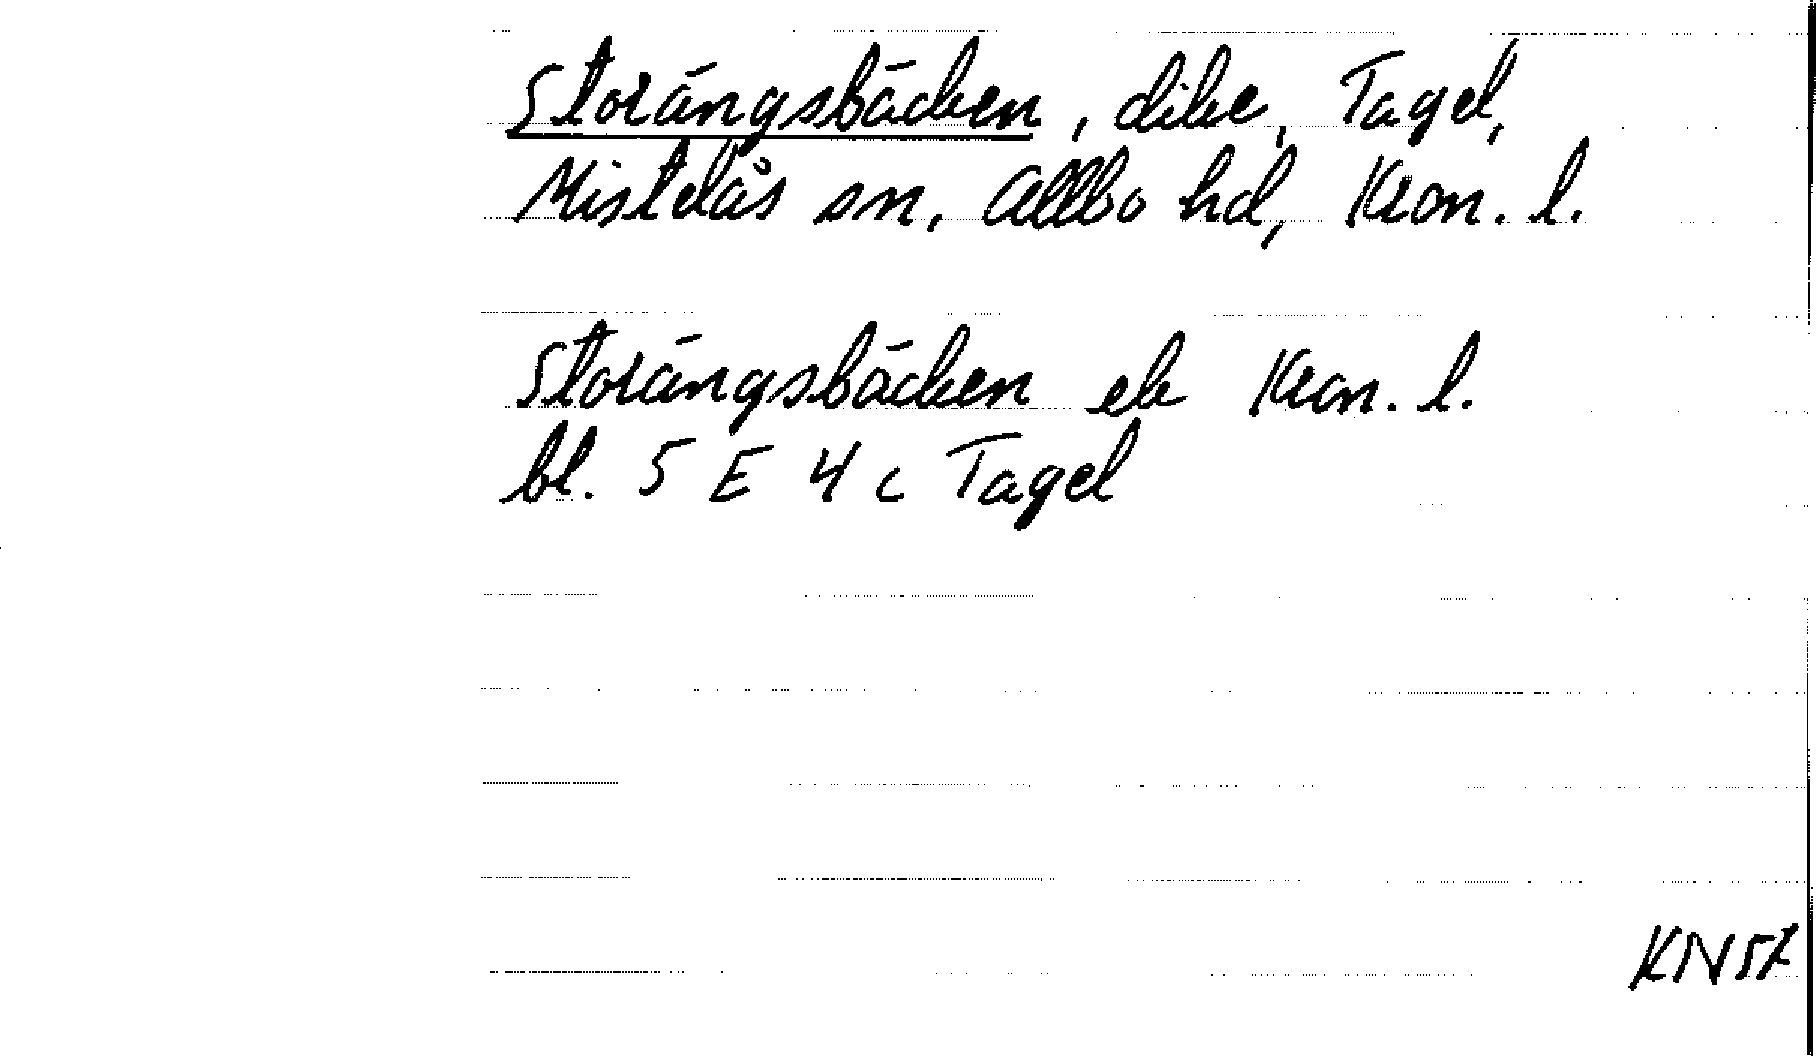 Storängsbäcken, dike, Tagel,
Mistelås sn, Allbo hd, Kron. l.
Storängsbäcken ek Kron. l.
bl. 5 E 4 c Tagel